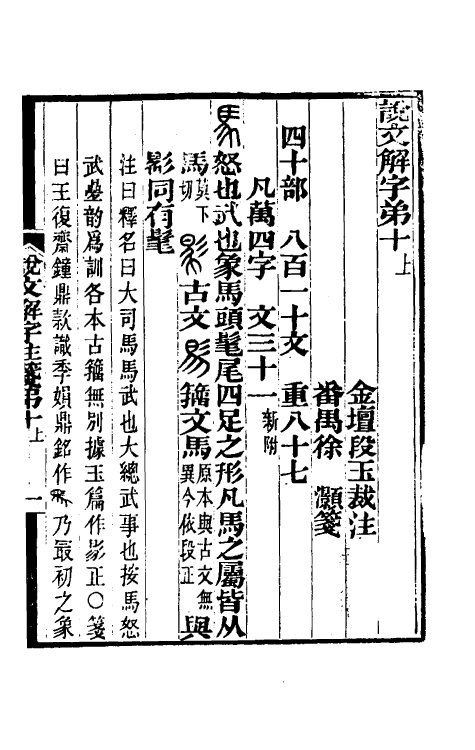 說文解字弟十上
金壇段玉裁注
番禺徐灝箋
四十部 八百一十文 重八十七
凡萬四字 文三十一新附
馬怒也武也象馬頭髦尾四足之形凡馬之屬皆从
馬莫下切 古文 籒文馬原本與古文無異今依段正與
影同有髦
注曰釋名曰大司馬馬武也大總武事也按馬怒
武疊韵爲訓各本古籒無別據玉篇作影正〇箋
曰王復齋鐘鼎款識季娟鼎銘作 乃最初之象
說文解字注箋第十上 一